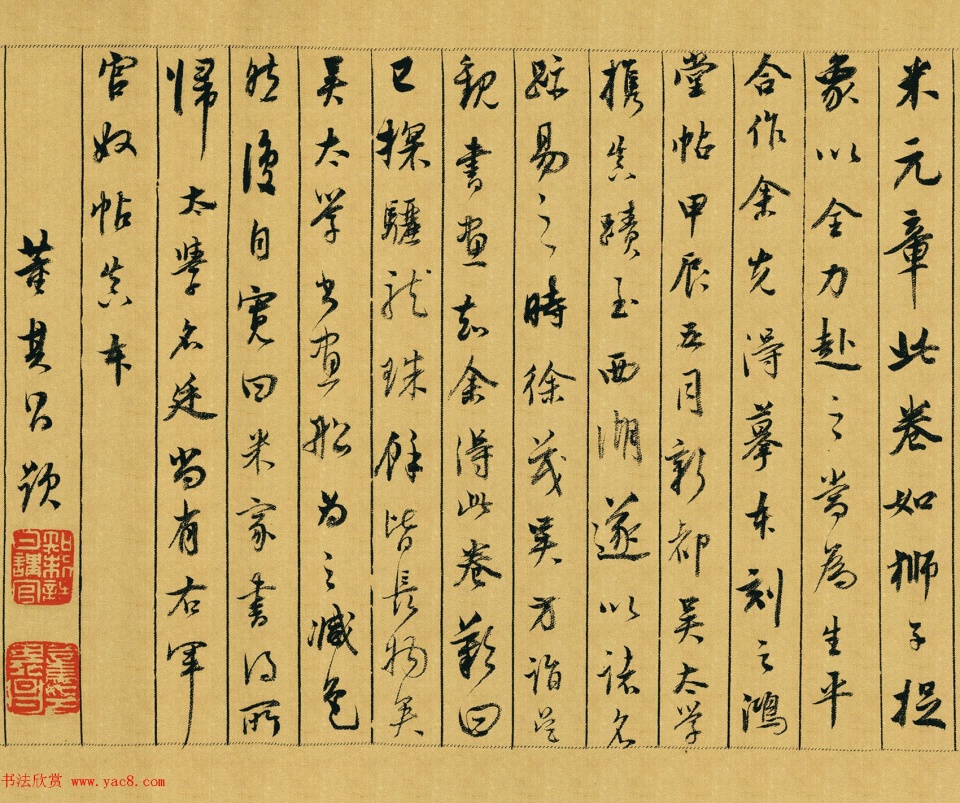 米元章此卷如獅子捉
象以全力赴之當為生平
合作余先得摹本刻之鴻
堂帖甲辰五月新都吳太學
攜真蹟至西湖遂以諸名
跡易之時徐茂吳方詣吳
觀書畫知余得此卷歎曰
已探驪龍珠餘皆長物矣
吳太學書畫船為之減色
然復自寬曰米家書得所
歸太學名廷尚有右軍
官奴帖真本
董其昌題
知制誥日講官
董其昌
书法欣赏 www.yac8.com